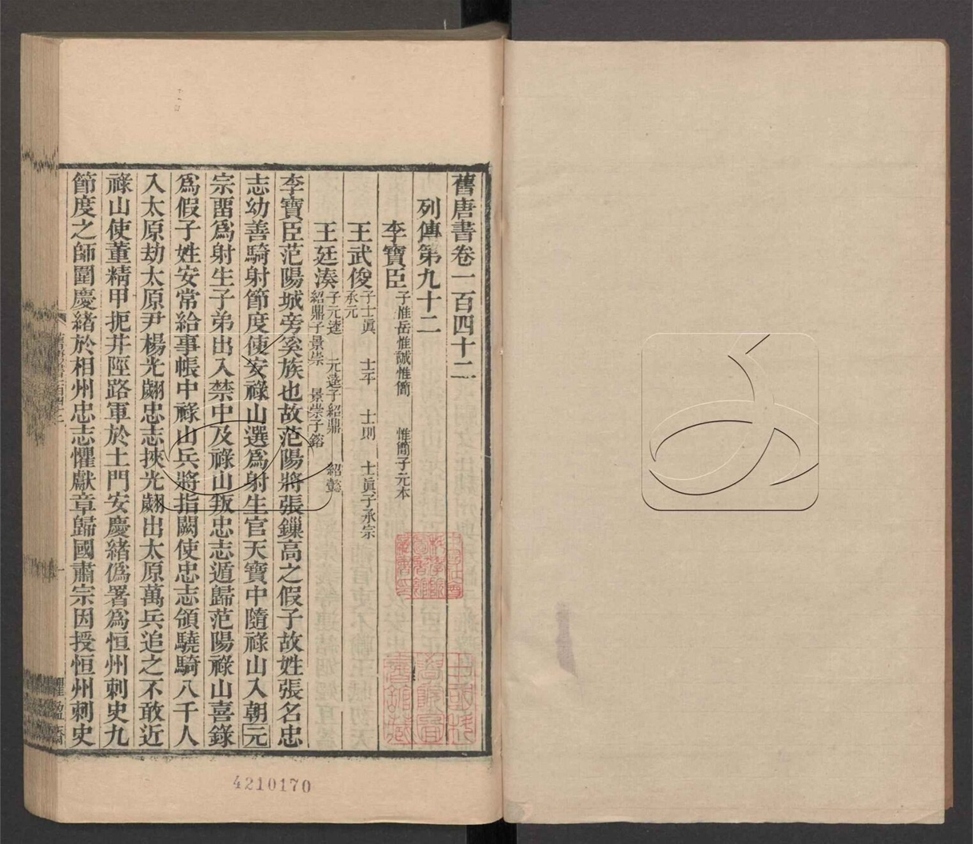 舊唐書卷一百四十二
列傳第九十二
李寶臣 子惟岳惟誠惟簡 惟簡子元本
王武俊 子士眞 士平 士則 士眞子承宗
承元
王廷湊 子元逵 元逵子紹鼎 紹懿
紹鼎子景崇 景崇子鎔
李寶臣范陽城旁奚族也故范陽將張鏁高之假子故姓張名忠
志幼善騎射節度使安祿山選爲射生官天寶中隨祿山入朝元
宗畱爲射生子弟出入禁中及祿山叛忠志遁歸范陽祿山喜錄
爲假子姓安常給事帳中祿山兵將指闕使忠志領驍騎八千人
入太原劫太原尹楊光翽忠志挾光翽出太原萬兵追之不敢近
祿山使董精甲扼井陘路軍於土門安慶緒僞署爲恒州刺史九
節度之師圍慶緒於相州忠志懼獻章歸國肅宗因授恒州刺史
懼盈齋
4210170